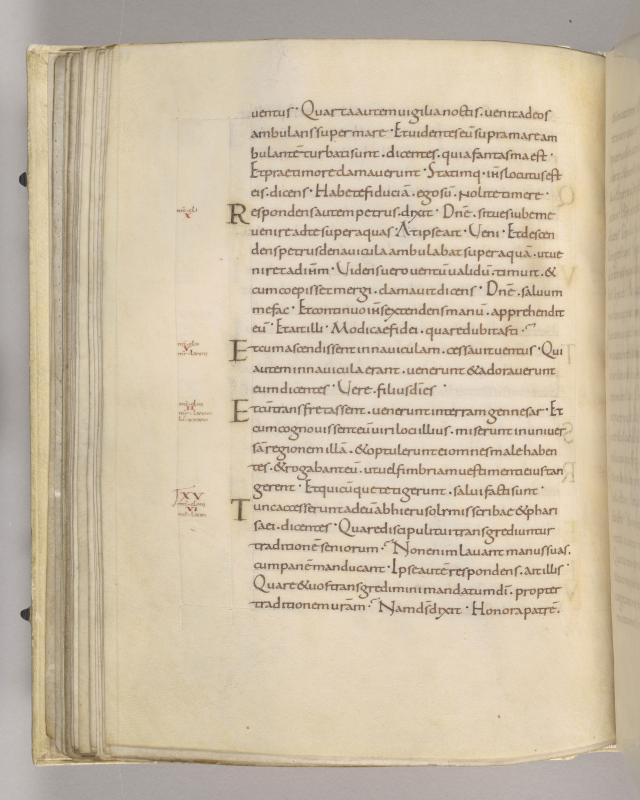 uentus · Quarta autem uigilia noctis · uenit ad eos
ambulans super mare · Et uidentes eū supra mare am
bulantē turbati sunt · dicentes · quia fantasma est ·
Et prae timore clamauerunt · Statimq · ih̄s locutus est
eis · dicens · Habete fiduciā · ego sū · Nolite timere ·
Respondens autem petrus · dixit · Dn̄e · si tu es iube me
uenire ad te super aquas · At ipse ait · Ueni · Et descen
dens petrus de nauicula ambulabat super aquā · ut ue
niret ad ih̄m · Uidens uero uentū ualidū · timuit · &
cum coepisset mergi · clamauit dicens · Dn̄e · saluum
me fac · Et continuo ih̄s extendens manū · apprehendit
eū · Et ait illi · Modicae fidei · quare dubitasti ·
Et cum ascendissent in nauiculam · cessauit uentus · Qui
autem in nauicula erant · uenerunt & adorauerunt
eum dicentes · Uere · filius dī es ·
Et cū transfretassent · uenerunt in terram gennesar · Et
cum cognouissent eū uiri loci illius · miserunt in uniuer
sā regionem illā · & optulerunt ei omnes male haben
tes · & rogabant eū · ut uel fimbriam uestimenti eius tan
gerent · Et quicūque tetigerunt · salui facti sunt ·
XV
Tunc accesserunt ad eū ab hierusolymis scribae & phari
VI
saei · dicentes · Quare discipuli tui transgrediuntur
traditionē seniorum · Non enim lauant manus suas ·
cum panē manducant · Ipse autē respondens · ait illis ·
Quare & uos transgredimini mandatum dī · propter
traditionem ur̄am · Nam dš dixit · Honora patrē ·